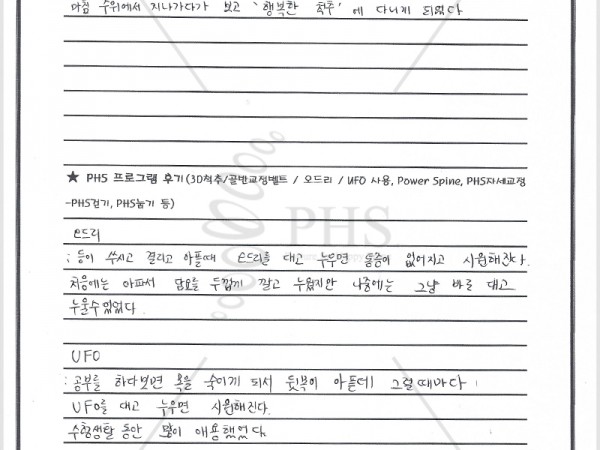 마침 주위에서 지나가다가 보고 '행복한 척추'에 다니게 되었다
★ PHS 프로그램 후기(3D척추/골반교정벨트 / 오드리 / UFO 사용, Power Spine, PHS자세교정
-PHS걷기, PHS눕기 등)
PHS
오드리
: 등이 쑤시고 결리고 아플때 오드리를 대고 누우면 통증이 없어지고 시원해진다.
처음에는 아파서 담요를 두껍게 깔고 누웠지만 나중에는 그냥 바로 대고
누울수 있었다
UFO
: 공부를 하다보면 목을 숙이게 되서 뒷목이 아픈데 그럴때마다
UFO를 대고 누우면 시원해진다.
수험생활 동안 많이 애용했었다